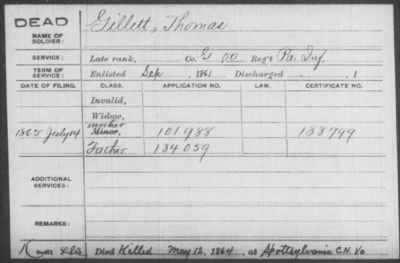 DEAD
NAME OF SOLDIER: Gillett, Thomas
SERVICE: Late rank, Co. G Reg't Pa. Inf.
TERM OF SERVICE: Enlisted Sep , 1861 Discharged , 1
DATE OF FILING. CLASS. APPLICATION NO. LAW. CERTIFICATE NO.
Invalid,
Widow,
mother
1865 July 14 Minor, 101988 138799
Father 134059
ADDITIONAL SERVICES:
REMARKS:
Died Killed May 12, 1864, at Spottsylvania C.H. Va